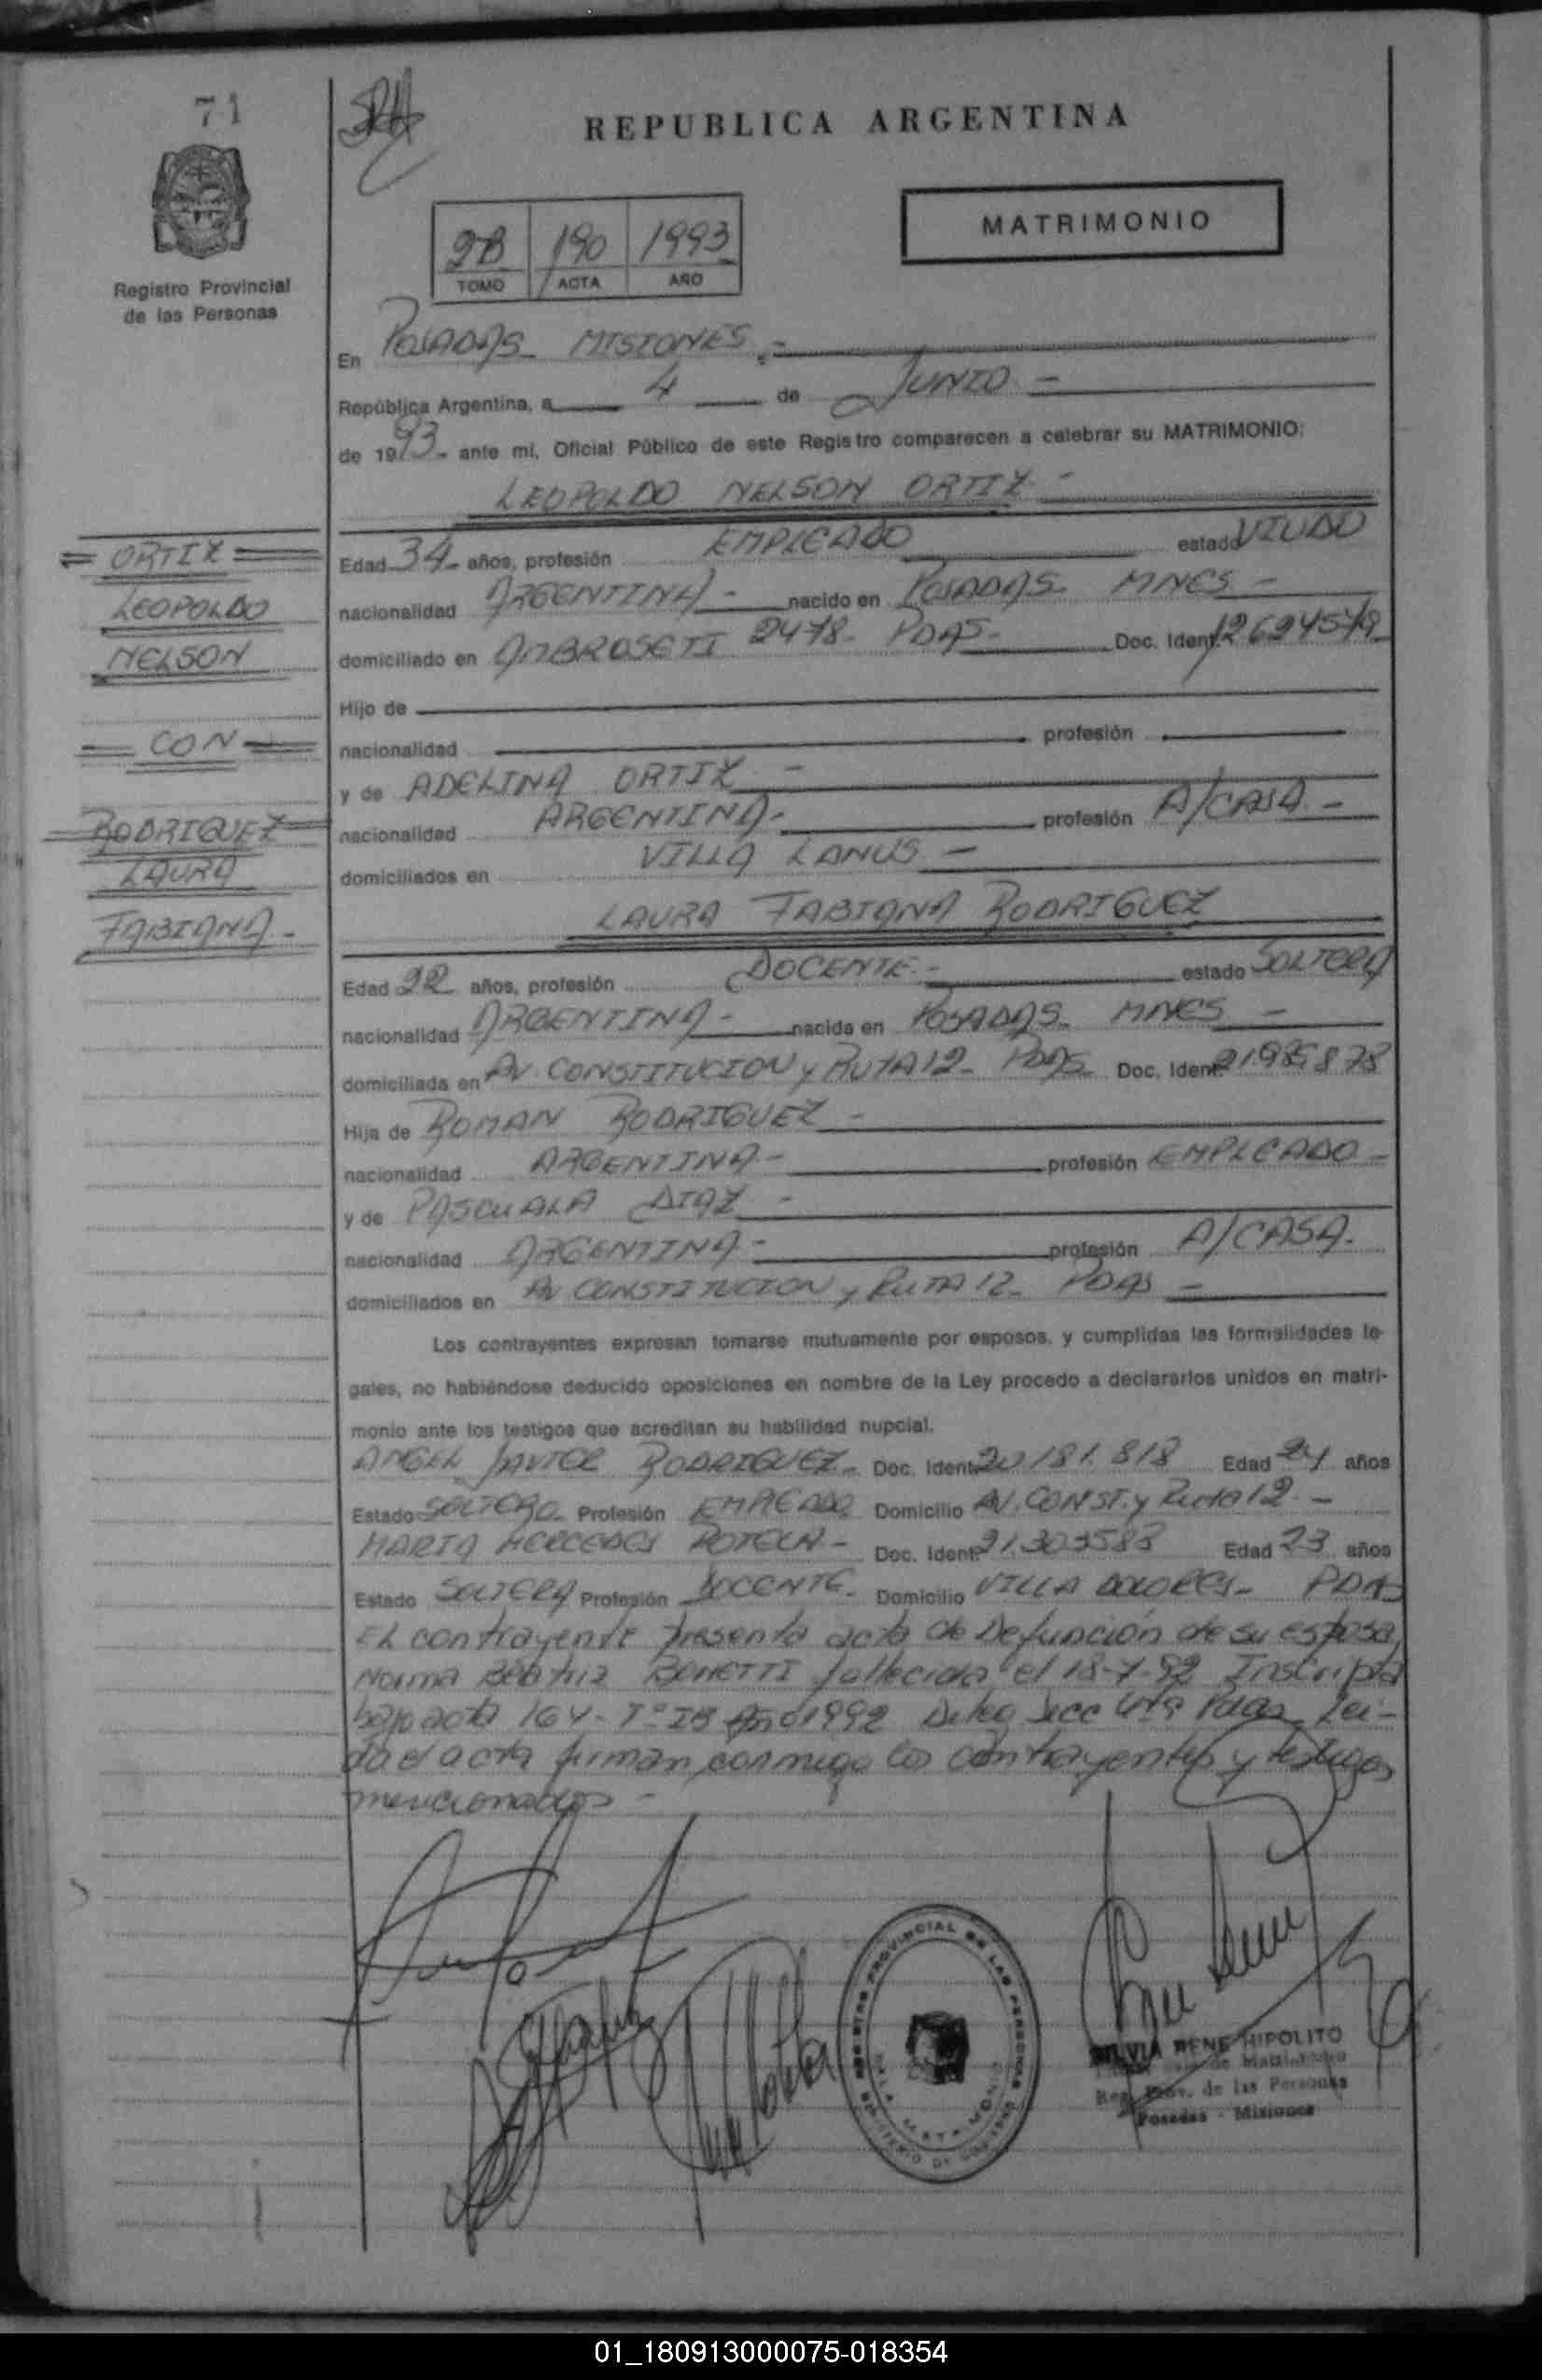 71
REPUBLICA ARGENTINA
MATRIMONIO
2B 190 1993
TOMO ACTA AÑO
Registro Provincial
de las Personas
En POSADAS MISIONES.-
República Argentina, a 4 de JUNIO -
de 1993- ante mí, Oficial Público de este Registro comparecen a celebrar su MATRIMONIO:
LEOPOLDO NELSON ORTIZ -
= ORTIZ =
LEOPOLDO
NELSON
= CON =
RODRIGUEZ
LAURA
FABIANA.-
Edad 34- años, profesión EMPLEADO estado VIUDO
nacionalidad ARGENTINA- nacido en POSADAS- MNES-
domiciliado en AMBROSETI 2478- PDAS- Doc. Ident. 12624579
Hijo de
nacionalidad profesión
y de ADELINA ORTIZ -
nacionalidad ARGENTINA- profesión A/CASA-
domiciliados en VILLA LANUS -
LAURA FABIANA RODRIGUEZ
Edad 22 años, profesión DOCENTE.- estado SOLTERA
nacionalidad ARGENTINA- nacida en POSADAS- MNES -
domiciliada en AV. CONSTITUCION y RUTA 12- PDAS Doc. Ident. 21985878
Hija de ROMAN RODRIGUEZ -
nacionalidad ARGENTINA- profesión EMPLEADO-
y de PASCUALA DIAZ -
nacionalidad ARGENTINA- profesión A/CASA.
domiciliados en AV CONSTITUCION y RUTA 12- PDAS -
Los contrayentes expresan tomarse mutuamente por esposos, y cumplidas las formalidades le-
gales, no habiéndose deducido oposiciones en nombre de la Ley procedo a declararlos unidos en matri-
monio ante los testigos que acreditan su habilidad nupcial.
ANGEL JAVIER RODRIGUEZ- Doc. Ident. 20181.818 Edad 24 años
Estado SOLTERO- Profesión EMPLEADO Domicilio AV. CONST. y Ruta 12.-
MARIA MERCEDES ROTELA- Doc. Ident. 21.303588 Edad 23 años
Estado SOLTERA Profesión DOCENTE- Domicilio VILLA DOLORES- PDAS
El contrayente presenta acta de Defunción de su esposa
Norma Beatriz BONETTI fallecida el 18-7-92 Inscripta
bajo acta 164- T° IB Año 1992 Secc 4ta Pdas- Lei-
da el acta firman conmigo los contrayentes y testigos
mencionados -
REGISTRO PROVINCIAL DE LAS PERSONAS
MINISTERIO DE GOBIERNO
SILVIA RENE HIPOLITO
Reg. Prov. de las Personas
Posadas - Misiones
01_180913000075-018354